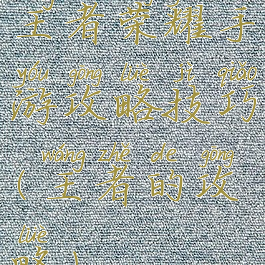 王者荣耀手
yóu gōng lüè jì qiǎo
游攻略技巧
wáng zhě de gōng
(王者的攻
lüè
略)